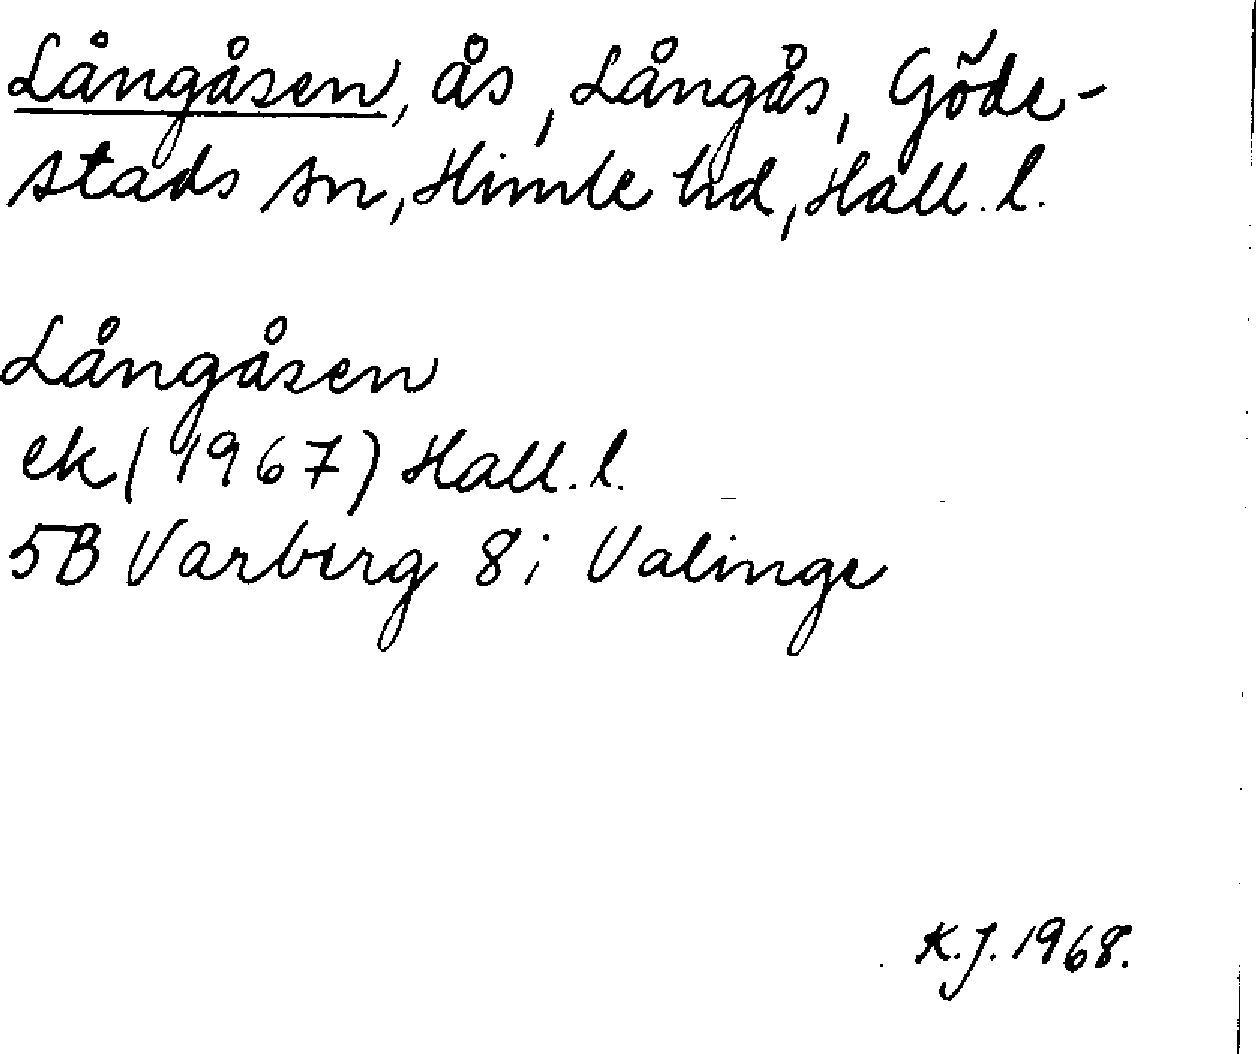 Långåsen, ås, Långås, Göde-
stads sn, Himle hd, Hall. l.
Långåsen
ek (1967) Hall. l.
5B Varberg 8i Valinge
K.J. 1968.